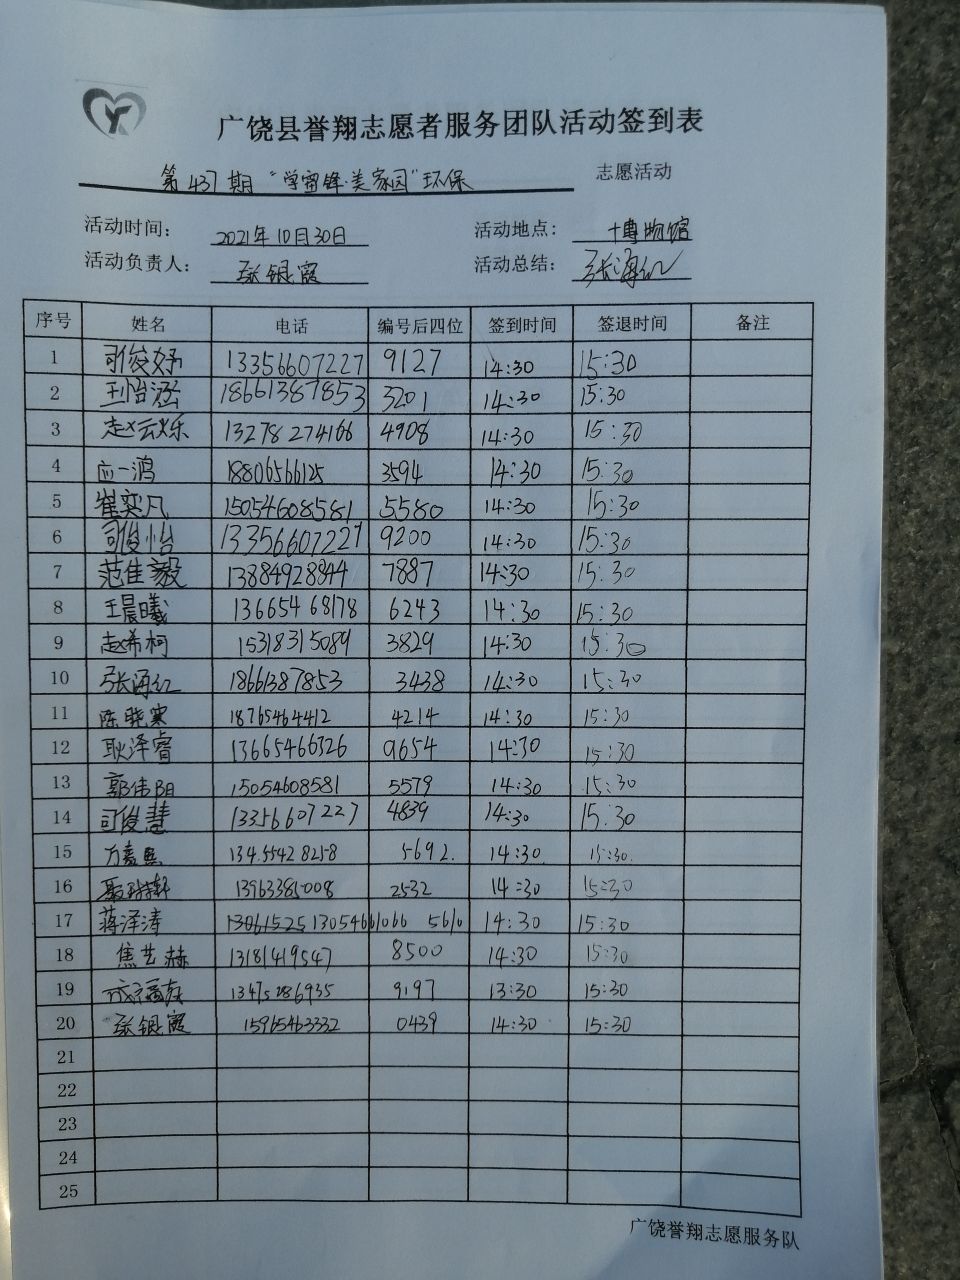 广饶县誉翔志愿者服务团队活动签到表
第437期“学雷锋·美家园”环保 志愿活动
活动时间: 2021年10月30日 活动地点: 博物馆
活动负责人: 张银霞 活动总结: 张海红
序号 姓名 电话 编号后四位 签到时间 签退时间 备注
1 司俊妤 13356607227 9127 14:30 15:30
2 王怡涵 18661387853 3201 14:30 15:30
3 赵云烁 13278274166 4908 14:30 15:30
4 应一鸿 18806566125 3594 14:30 15:30
5 崔奕凡 15054608581 5580 14:30 15:30
6 司俊怡 13356607227 9200 14:30 15:30
7 范佳毅 13884928844 7887 14:30 15:30
8 王晨曦 13665468178 6243 14:30 15:30
9 赵希柯 15318315089 3829 14:30 15:30
10 张海红 18661387853 3438 14:30 15:30
11 陈晓寒 18765464412 4214 14:30 15:30
12 耿泽睿 13665466326 9654 14:30 15:30
13 郭伟阳 15054608581 5579 14:30 15:30
14 司俊慧 13356607227 4839 14:30 15:30
15 134.5542 8258 5692. 14:30 15:30.
16 13963385008 2532 14:30 15:30
17 蒋泽涛 13061525 13054661066 5610 14:30 15:30
18 焦艺赫 13181419547 8500 14:30 15:30
19 13475286935 9197 13:30 15:30
20 张银霞 15965463332 0439 14:30 15:30
21
22
23
24
25
广饶誉翔志愿服务队